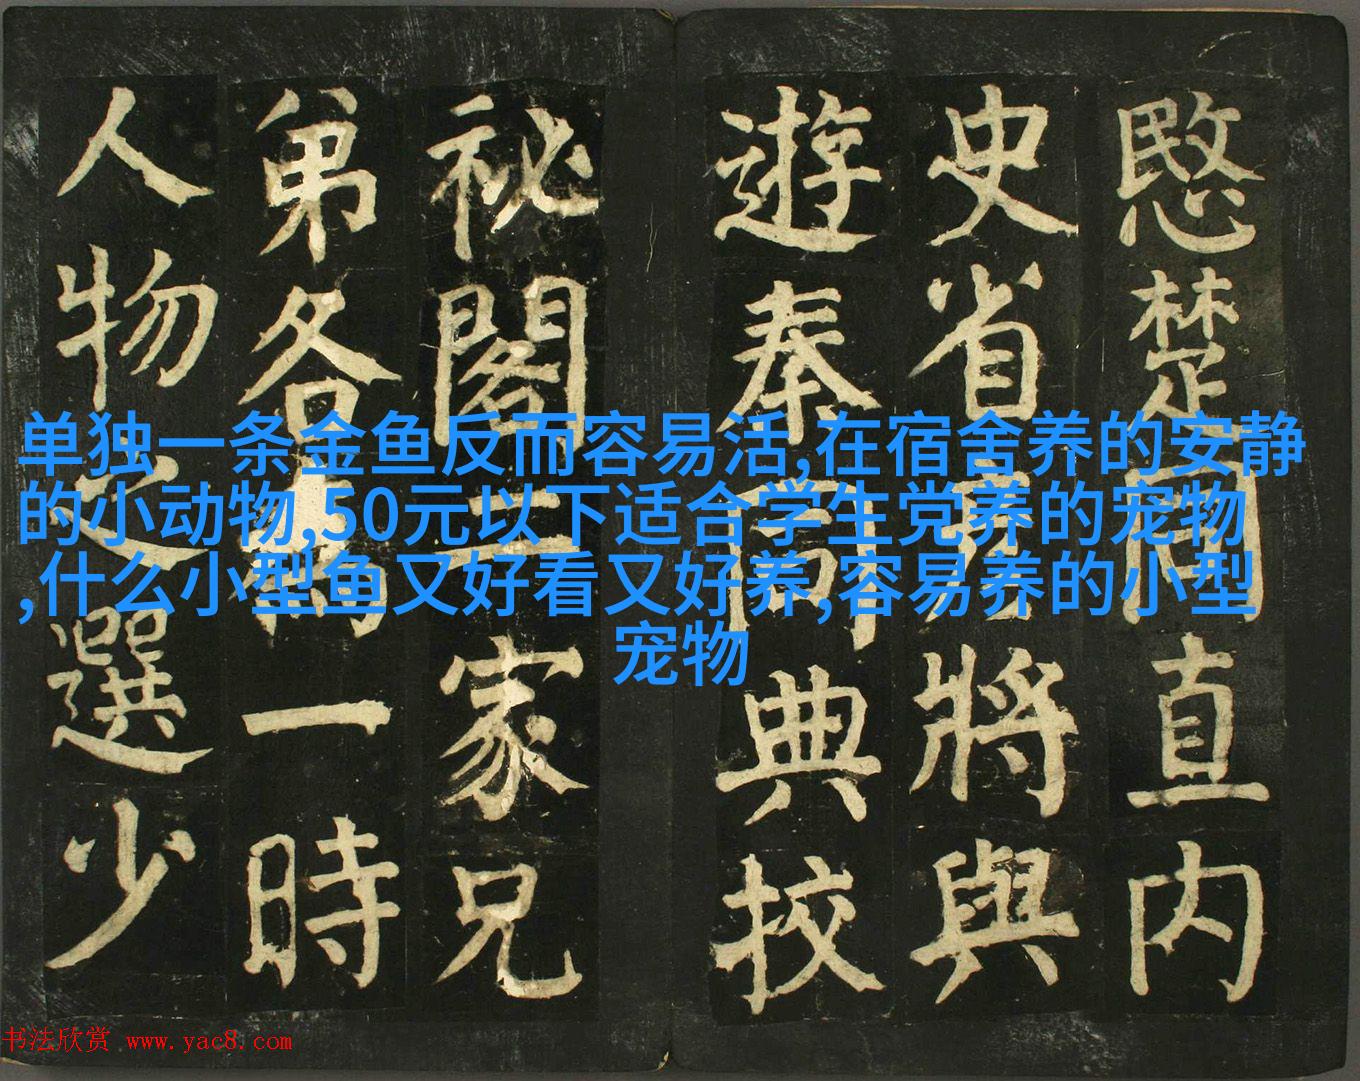 愍楚同直内
史省彦將與
遊秦同典校
祕閣二家兄
弟各為一時
人物之選少
单独一条金鱼反而容易活,在宿舍养的安静
的小动物,50元以下适合学生党养的宠物
,什么小型鱼又好看又好养,容易养的小型
宠物
书法欣赏 www.yac8.com